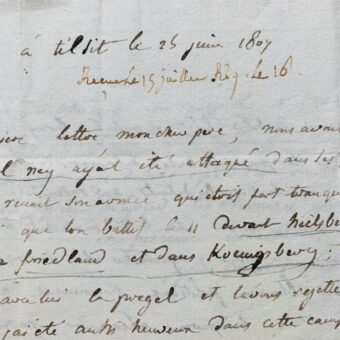 à tilsit le 25 juin 1807
Reçue le 15 juillet Rép. le 16
lettre mon cher pere, nous avons
l ney ayant été attaqué dans ses
reunit son armée qui étoit fort tranqu
que l'on battit le 11 devant heilsb
friedland et dans Koenigsberg,
le pregel et l'avons rejetté
j'ai été aussi heureux dans cette camp